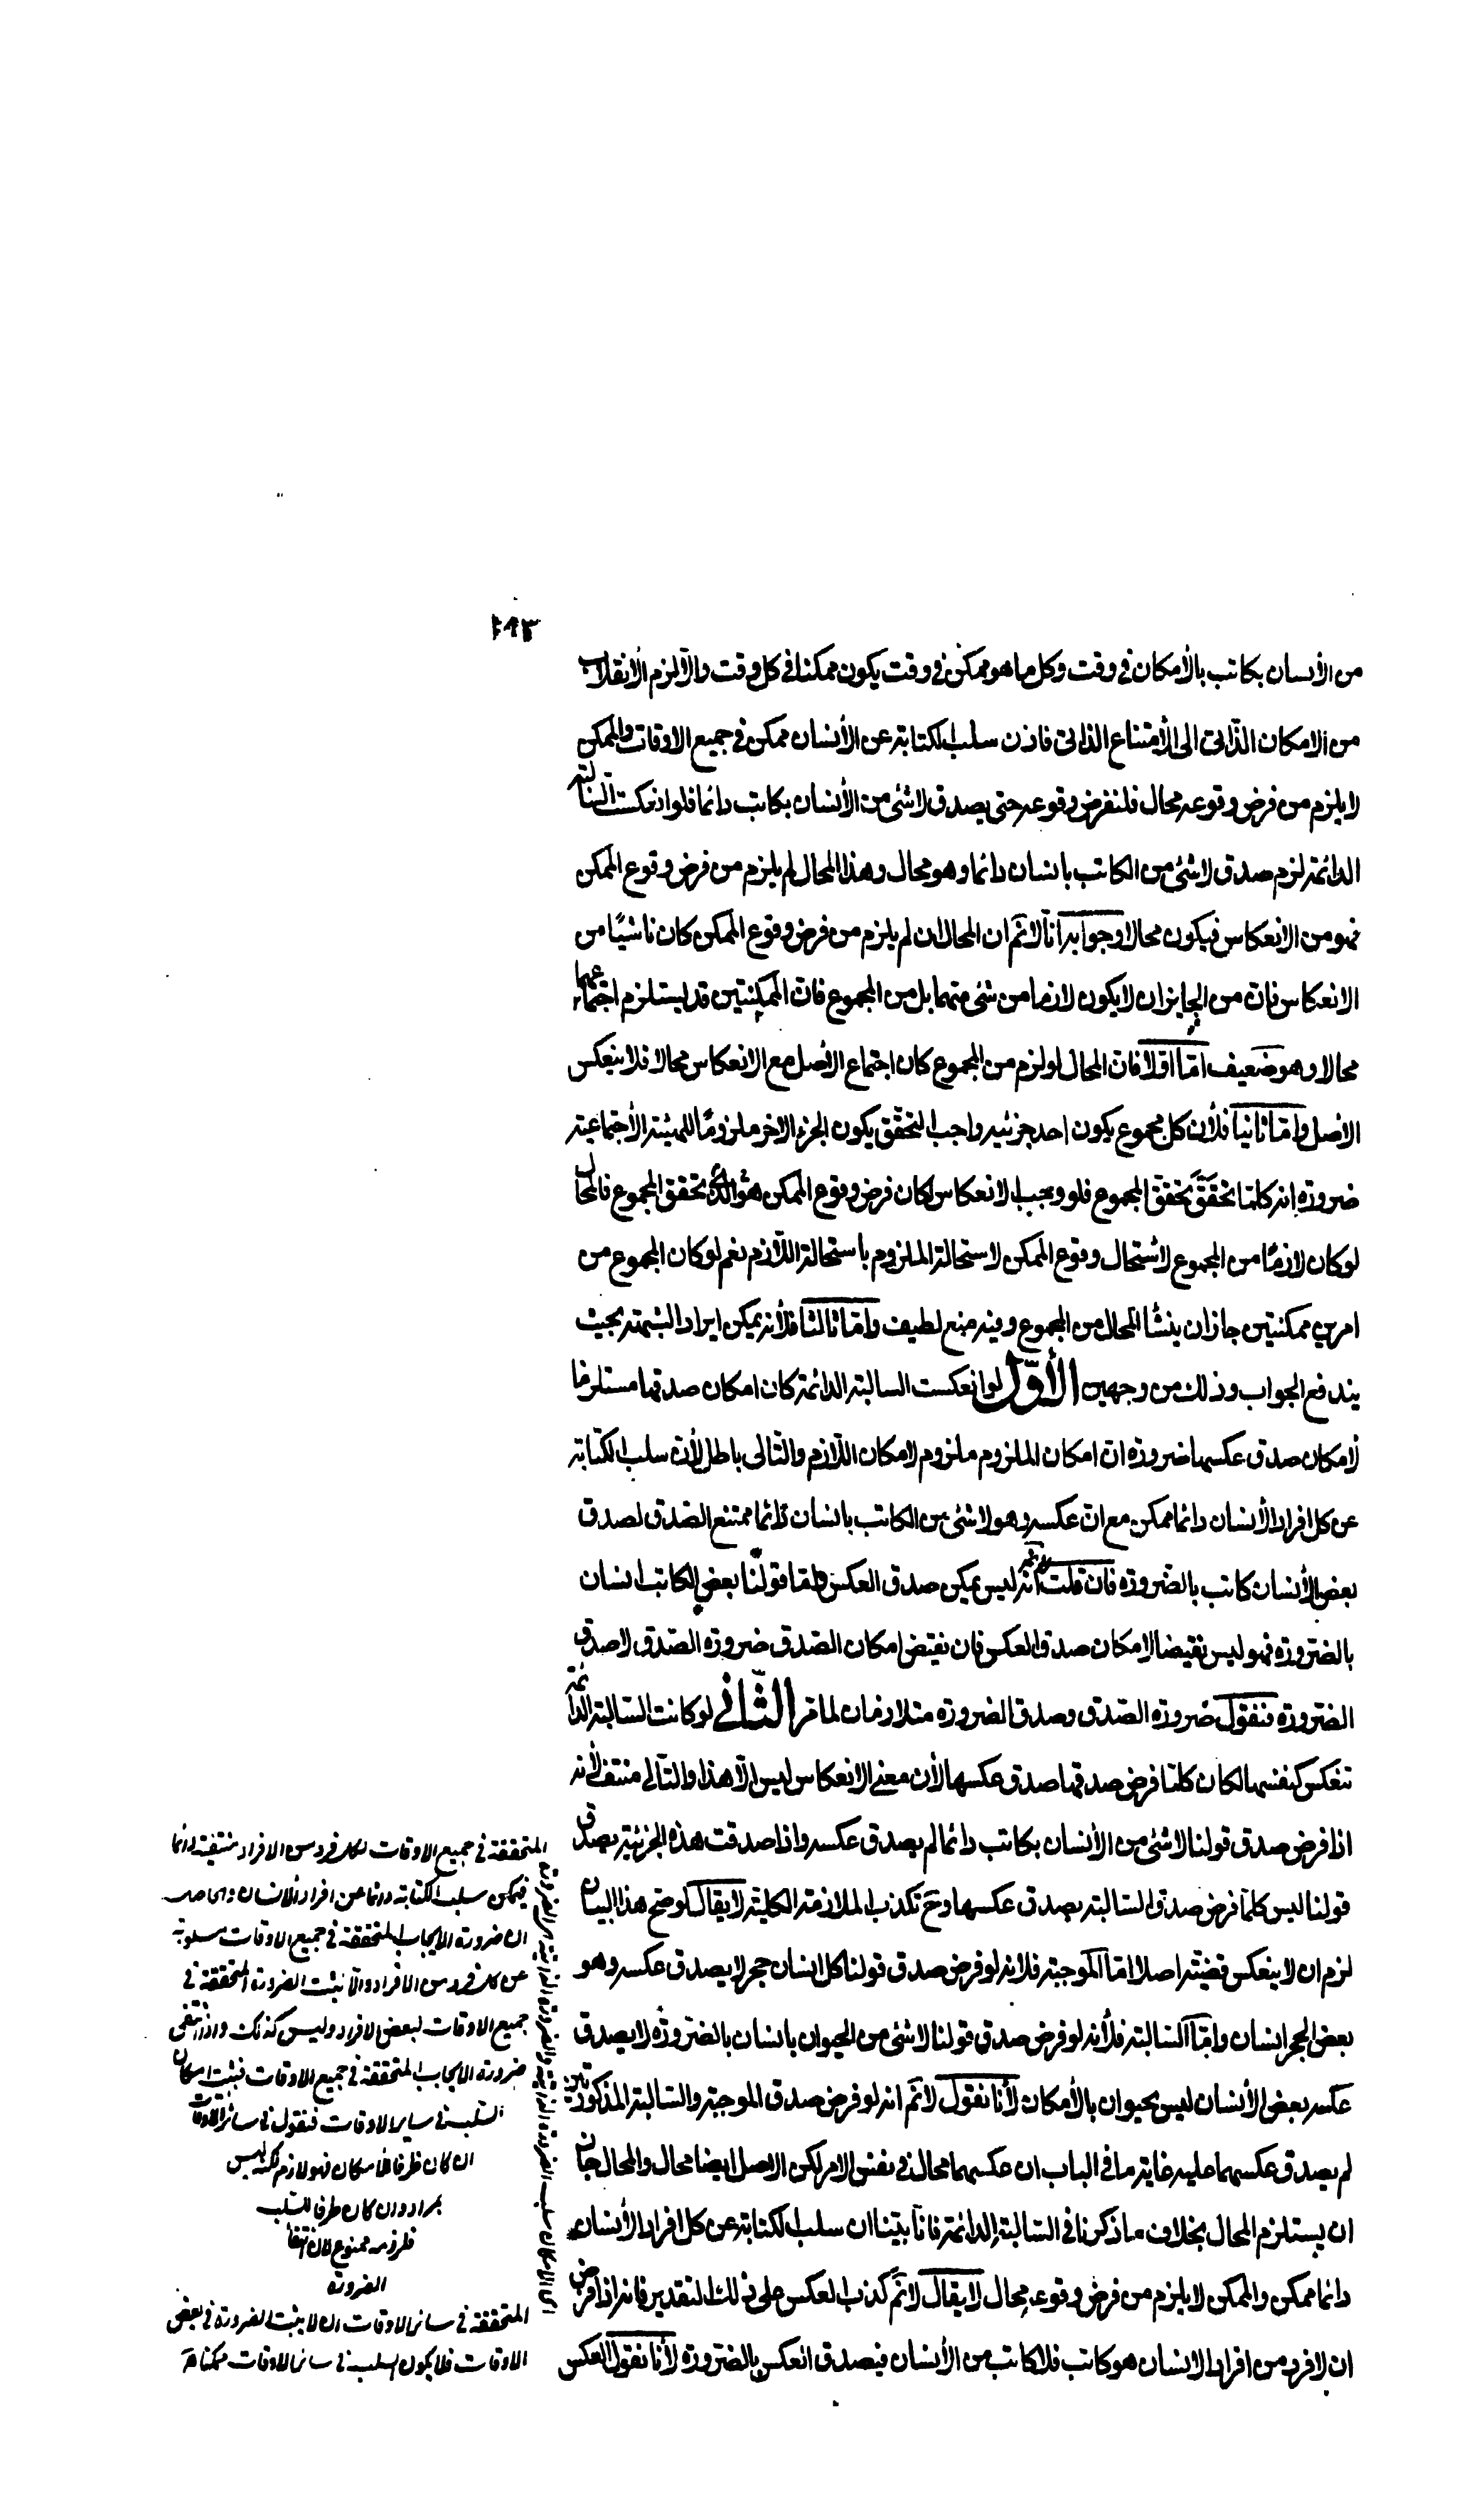 ١٩٣
من الأنسان بكاتب بالأمكان فى وقت وكل ما هو ممكن فى وقت يكون ممكنا فى كل وقت والّا لزم الأنقلاب
من الامكان الذّاتى الى الأمتناع الذاتى فاذن سلب الكتابة عن الأنسان ممكن فى جميع الاوقات والممكن
لا يلزم من فرض وقوعه محال فلنفرض وقوعه حتى يصدق لا شئ من الأنسان بكاتب دائما فلو انعكست السّالبة
الدائمة لزم صدق لا شئ من الكاتب بانسان دائما وهو محال وهذا المحال لم يلزم من فرض وقوع الممكن
فهو من الانعكاس فيكون محالا وجوابه انّا لا نمّ ان المحال ان لم يلزم من فرض وقوع الممكن كان ناشيًا من
الانعكاس فانّ من الجايز ان لا يكون لازما من شئ منهما بل من المجموع فانّ الممكنتين قد يستلزم اجتماعهما
محالا وهو ضعيف امّا اوّلا فانّ المحال لو لزم من المجموع كان اجتماع الأصل مع الانعكاس محالا فلا ينعكس
الاصل وامّا ثانيا فلأن كل مجموع يكون احد جزئيه واجب التحقّق يكون الجزء الاخر ملزومًا للهيئة الأجتماعية
ضرورة انه كلّما تحقّق تحقّق المجموع فلو وجب الانعكاس لكان فرض وقوع الممكن هو تحقق المجموع فالمحال
لو كان لازمًا من المجموع لاستحال وقوع الممكن لاستحالة الملزوم باستحالة اللّازم نعم لو كان المجموع من
امرين ممكنين جاز ان ينشأ المحال من المجموع وفيه منع لطيف وامّا ثالثا فلأنه يمكن ايراد الشبهة بحيث
يندفع الجواب وذلك من وجهين الأوّل لو انعكست السالبة الدائمة كان امكان صدقها مستلزما
لأمكان صدق عكسها ضرورة انّ امكان الملزوم ملزوم لامكان اللّازم والتالى باطل لأنّ سلب الكتابة
عن كل افراد الأنسان دائما ممكن مع انّ عكسه وهو لا شئ من الكاتب بانسان دائما ممتنع الصّدق لصدق
بعض الأنسان كاتب بالضّرورة فان قلت لا نمّ انه ليس يمكن صدق العكس وامّا قولنا بعض الكاتب انسان
بالضّرورة فهو ليس نقيضا لامكان صدق العكس فان نقيض امكان الصّدق ضرورة الصّدق لا صدق
الضّرورة فنقول ضرورة الصّدق وصدق الضرورة متلازمان لما مرّ الثّانى لو كانت السّالبة الدائمة
تنعكس كنفسها لكان كلّما فرض صدقها صدق عكسها لأن معنى الانعكاس ليس الّا هذا والتّالى منتف لأنه
اذا فرض صدق قولنا لا شئ من الأنسان بكاتب دائما لم يصدق عكسه واذا صدقت هذه الجزئية يصدق
قولنا ليس كلّما فرض صدق السّالبة يصدق عكسها وحّ تكذب الملازمة الكلية لا يقال لو صح هذا البيان
لزم ان لا ينعكس قضيّة اصلا امّا الموجبة فلانه لو فرض صدق قولنا كل انسان حجر لا يصدق عكسه وهو
بعض الحجر انسان وامّا السّالبة فلأنه لو فرض صدق قولنا لا شئ من الحيوان بانسان بالضّرورة لا يصدق
عكسه بعض الأنسان ليس بحيوان بالأمكان لأنا نقول لا نمّ انه لو فرض صدق الموجبة والسّالبة المذكورتين
لم يصدق عكسهما عليه غاية ما فى الباب ان عكسهما محال فى نفس الامر لكن الاصل ايضا محال والمحال جاز
ان يستلزم المحال بخلاف ما ذكرنا فى السّالبة الدائمة فانّا بيّنا ان سلب الكتابة عن كل افراد الأنسان
دائما ممكن والممكن لا يلزم من فرض وقوعه محال لا يقال لا نمّ كذب العكس على ذلك التقدير فانه اذا فرض
ان لا فرد من افراد الانسان هو كاتب فلا كاتب من الأنسان فيصدق العكس بالضّرورة لأنا نقول العكس
المتحققة فى جميع الاوقات لكل فرد من الافراد منتفية دائما
فيمكن سلب الكتابة دائما عن افراد الانسان
ان ضرورة الايجاب المتحققة فى جميع الاوقات مسلوبة
عن كل فرد من الافراد والّا ثبت الضرورة المتحققة فى
جميع الاوقات لبعض الافراد وليس كذلك واذا انتفى
ضرورة الايجاب المتحققة فى جميع الاوقات ثبت امكان
السّلب فى ساير الاوقات فنقول فى سائر الاوقات
ان كان ظرفا لامكان فهو لازم لكنه ليس
بمراد وان كان ظرفا للسّلب
فلزومه ممنوع لان انتفاء
الضرورة
المتحققة فى سائر الاوقات ان لا يثبت الضرورة فى بعض
الاوقات فلا يكون السلب فى سائر الاوقات ممكنا